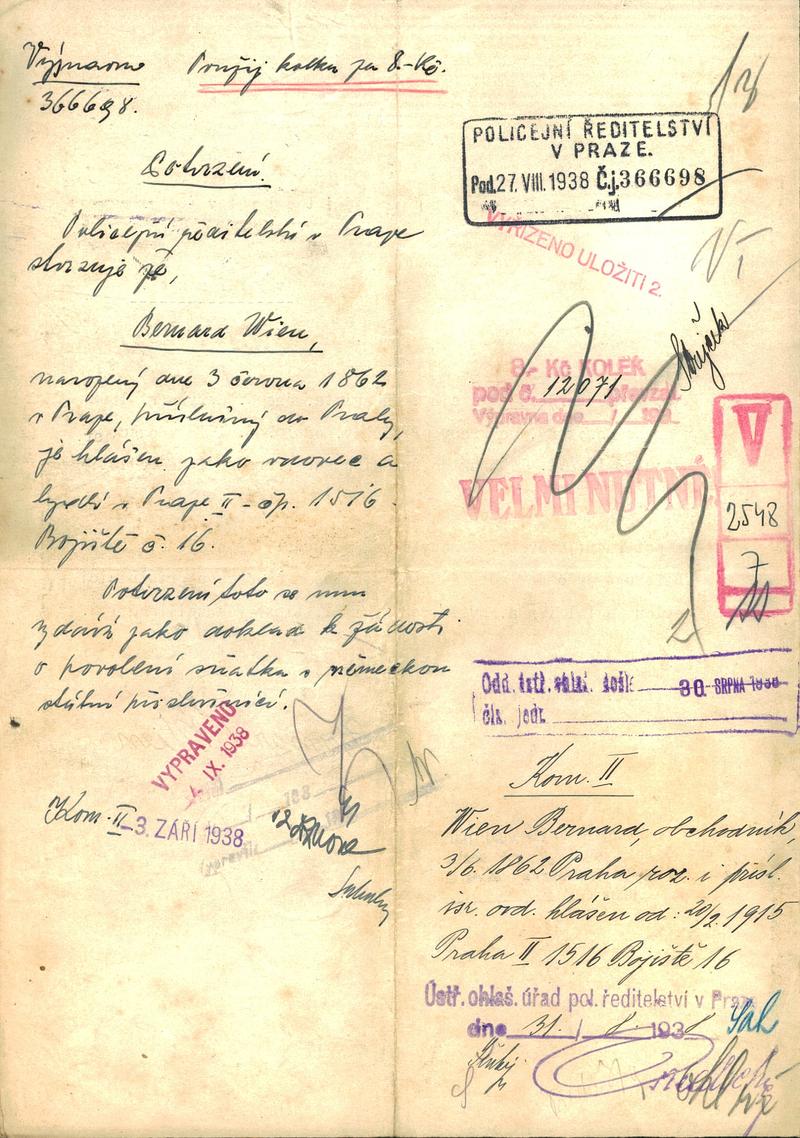 Výpravna Použij kolku za 8.-Kč.
366698.
Potvrzení.
Policejní ředitelství v Praze
stvrzuje že,
Bernard Wien,
narozený dne 3 června 1862
v Praze, příslušný do Prahy,
je hlášen jako vdovec a
bydlí v Praze II - čp. 1516
Bojiště č. 16.
Potvrzení toto se mu
vydává jako doklad k žádosti
o povolení sňatku s německou
státní příslušnicí.
VYPRAVENO
IX. 1938
Kom. II
-3. ZÁŘÍ 1938
POLICEJNÍ ŘEDITELSTVÍ
V PRAZE.
Pod. 27. VIII. 1938 Č.j. 366698
VYŘÍZENO ULOŽITI 2.
VI
8.- Kč KOLEK
pod č. 12071 převzal.
Výpravna dne / 193
VELMI NUTNÉ
V
2548
7
2
Odd. ústř. ohlaš. došlo 30. SRPNA 1938
čís. jedn.
Kom. II
Wien Bernard, obchodník,
3/6. 1862 Praha roz. i přísl.
isr. ovd. hlášen od: 20/2. 1915
Praha II 1516 Bojiště 16
Ústř. ohlaš. úřad pol. ředitelství v Praze
dne 31. / 8. 1938